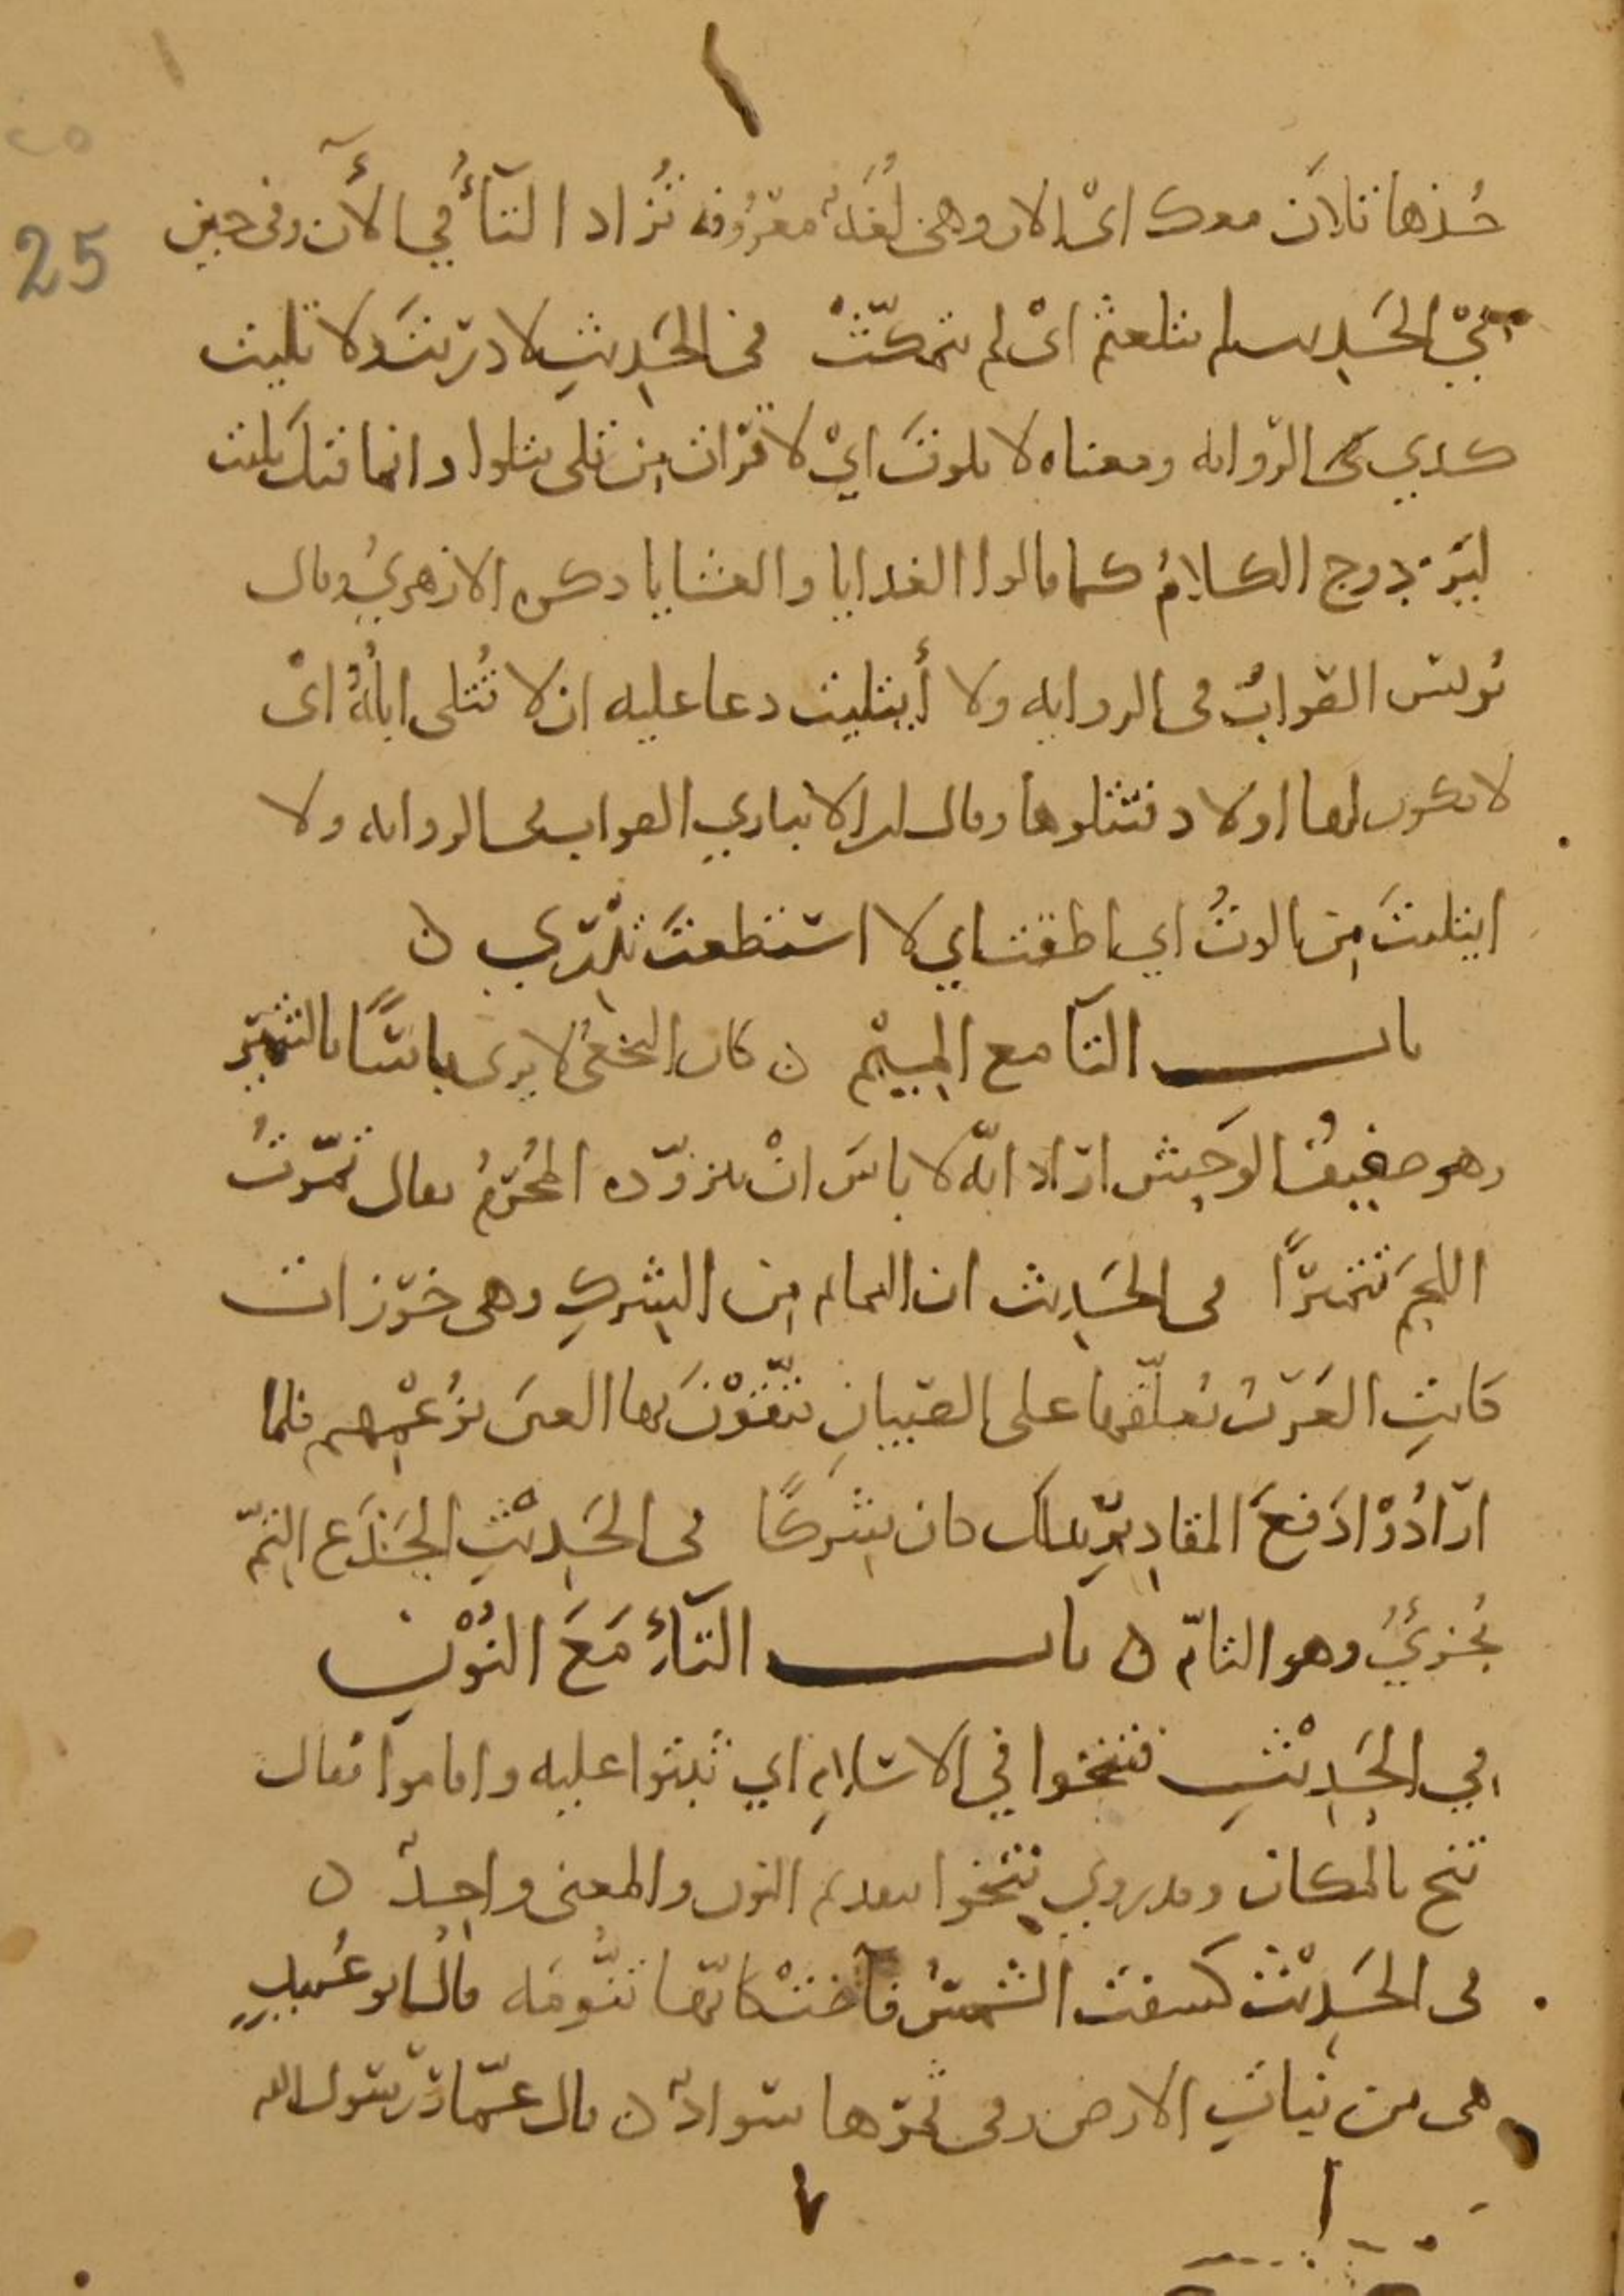 25
خُذها تلانَ معك اىْ الان وهى لُغَةٌ معرُوفه تُزاد التآءُ في الأَن وفى حين
في الحَديث لم يتلعثم اىْ لم يتمكّثْ فى الحَديثِ لا دريتَ ولا تليت
كذي فى الروايه ومعناه لا تلوتَ ايْ لا قرات مِن تلى يتلوا وانما قيل تليت
ليَزدوج الكلامُ كما قالوا الغدايا والعشايا ذكره الازهريُ وقال
يُونس الصوابُ فى الروايه ولا أَتليت دعا عليه ان لا تُتلى ابلُهُ اىْ
لا يكون لها اولاد فتتلوها وقال ابن الانباري الصواب فى الروايه ولا
ايتليتَ مِن الوتُ اي اطقت اي لا استطعتَ تدْرِي ن
باب التآ مع الميْم ن كان النخعى لا يرى باسًا بالتتمير
وهو صفيفُ الوحِش اراد انّه لا باسَ انْ يتزوّده المُحْرِمُ يقال تمّرتُ
اللحمَ تتميرًا فى الحَديث ان التمايم مِن الشِركِ وهى خرزات
كانتِ العَرَبُ تعلّقها على الصِبيانِ يتّقوْنَ بها العينَ بزُعْمِهم فلما
ارَادُوْا دَفعَ المقاديرِ بذلك كان شِركًا فى الحَديْثِ الجَذَع التِمّ
يُجزيُ وهو التامّ ن باب التآءِ مَعَ النُوْنِ
في الحَديْثِ فتنخوا في الاسلامِ اي ثبتوا عليه واقاموا يقال
تنخ بالمكان وقد روي نتخوا بتقديم النون والمعنى واحِدٌ ن
فى الحَديْث كسفت الشمسُ فآضتْ كانّها تنُّومَه قال ابو عُبيدٍ
هى من نباتِ الارض وفى ثمرها سوادٌ ن قال عمّار رسول الله